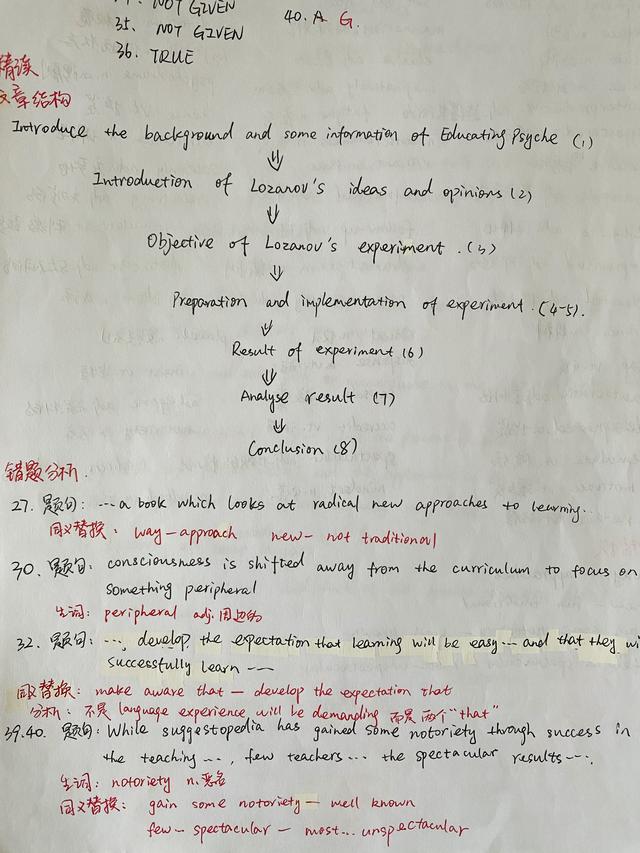 NOT GIVEN
35. NOT GIVEN 40. A G.
36. TRUE
精读
文章结构
Introduce the background and some information of Educating Psyche (1)
⇓
Introduction of Lozanov's ideas and opinions (2)
⇓
Objective of Lozanov's experiment. (3)
⇓
Preparation and implementation of experiment. (4-5).
⇓
Result of experiment (6)
⇓
Analyse result (7)
⇓
Conclusion (8)
错题分析.
27. 题句: ... a book which looks at radical new approaches to learning.
同义替换: way — approach new — not traditional
30. 题句: consciousness is shifted away from the curriculum to focus on
something peripheral
生词: peripheral adj. 周边的
32. 题句: ..., develop the expectation that learning will be easy ... and that they wi
successfully learn ---
同义替换: make aware that — develop the expectation that
分析: 不是 language experience will be demanding 而是两个"that"
39.40. 题句: While suggestopedia has gained some notoriety through success in
the teaching ..., few teachers ... the spectacular results ---.
生词: notoriety n. 恶名
同义替换: gain some notoriety — well known
few — spectacular — most... unspectacular